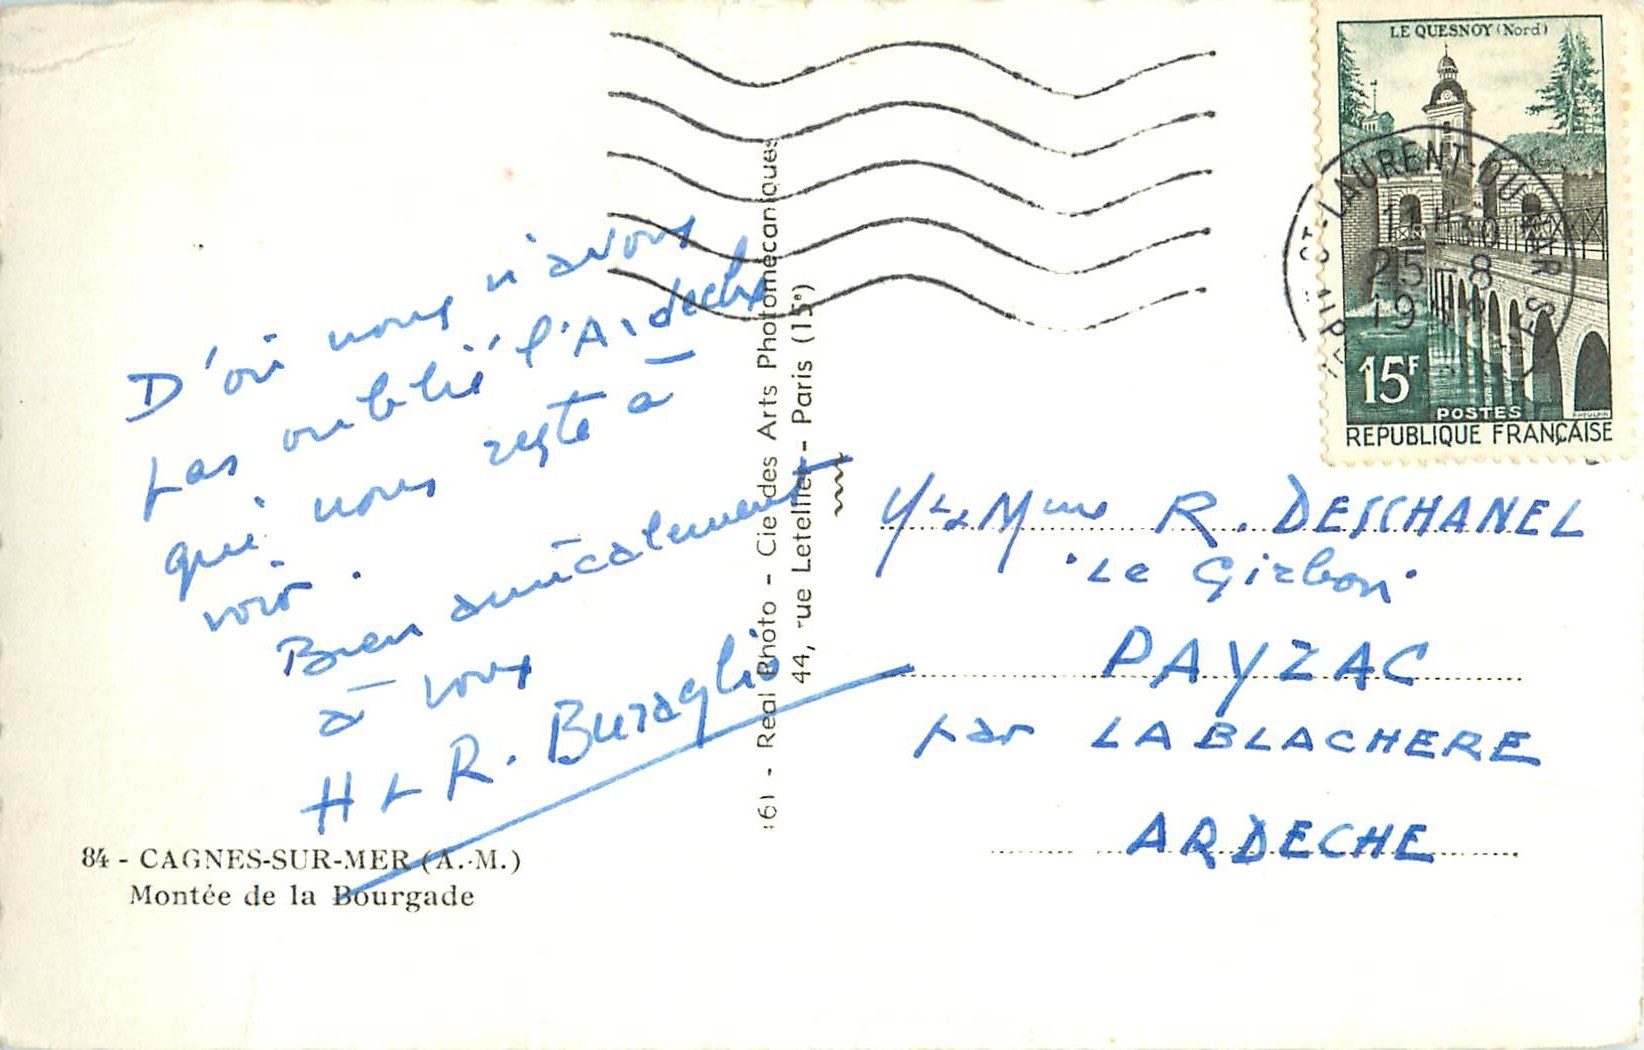 D'où nous n'avons
pas oublié l'Ardeche
qui nous reste à
voir.
Bien amicalement
à vous
H & R. Buraglio
84 - CAGNES-SUR-MER (A.-M.)
Montée de la Bourgade
Real Photo - Cie des Arts Photomécaniques
44, rue Letellier - Paris (15e)
LE QUESNOY (Nord)
ST-LAURENT-DU-VAR
30
25 - 8
19
15F
POSTES
REPUBLIQUE FRANÇAISE
Mme R. DESCHANEL
PAYZAC
par LABLACHERE
ARDECHE